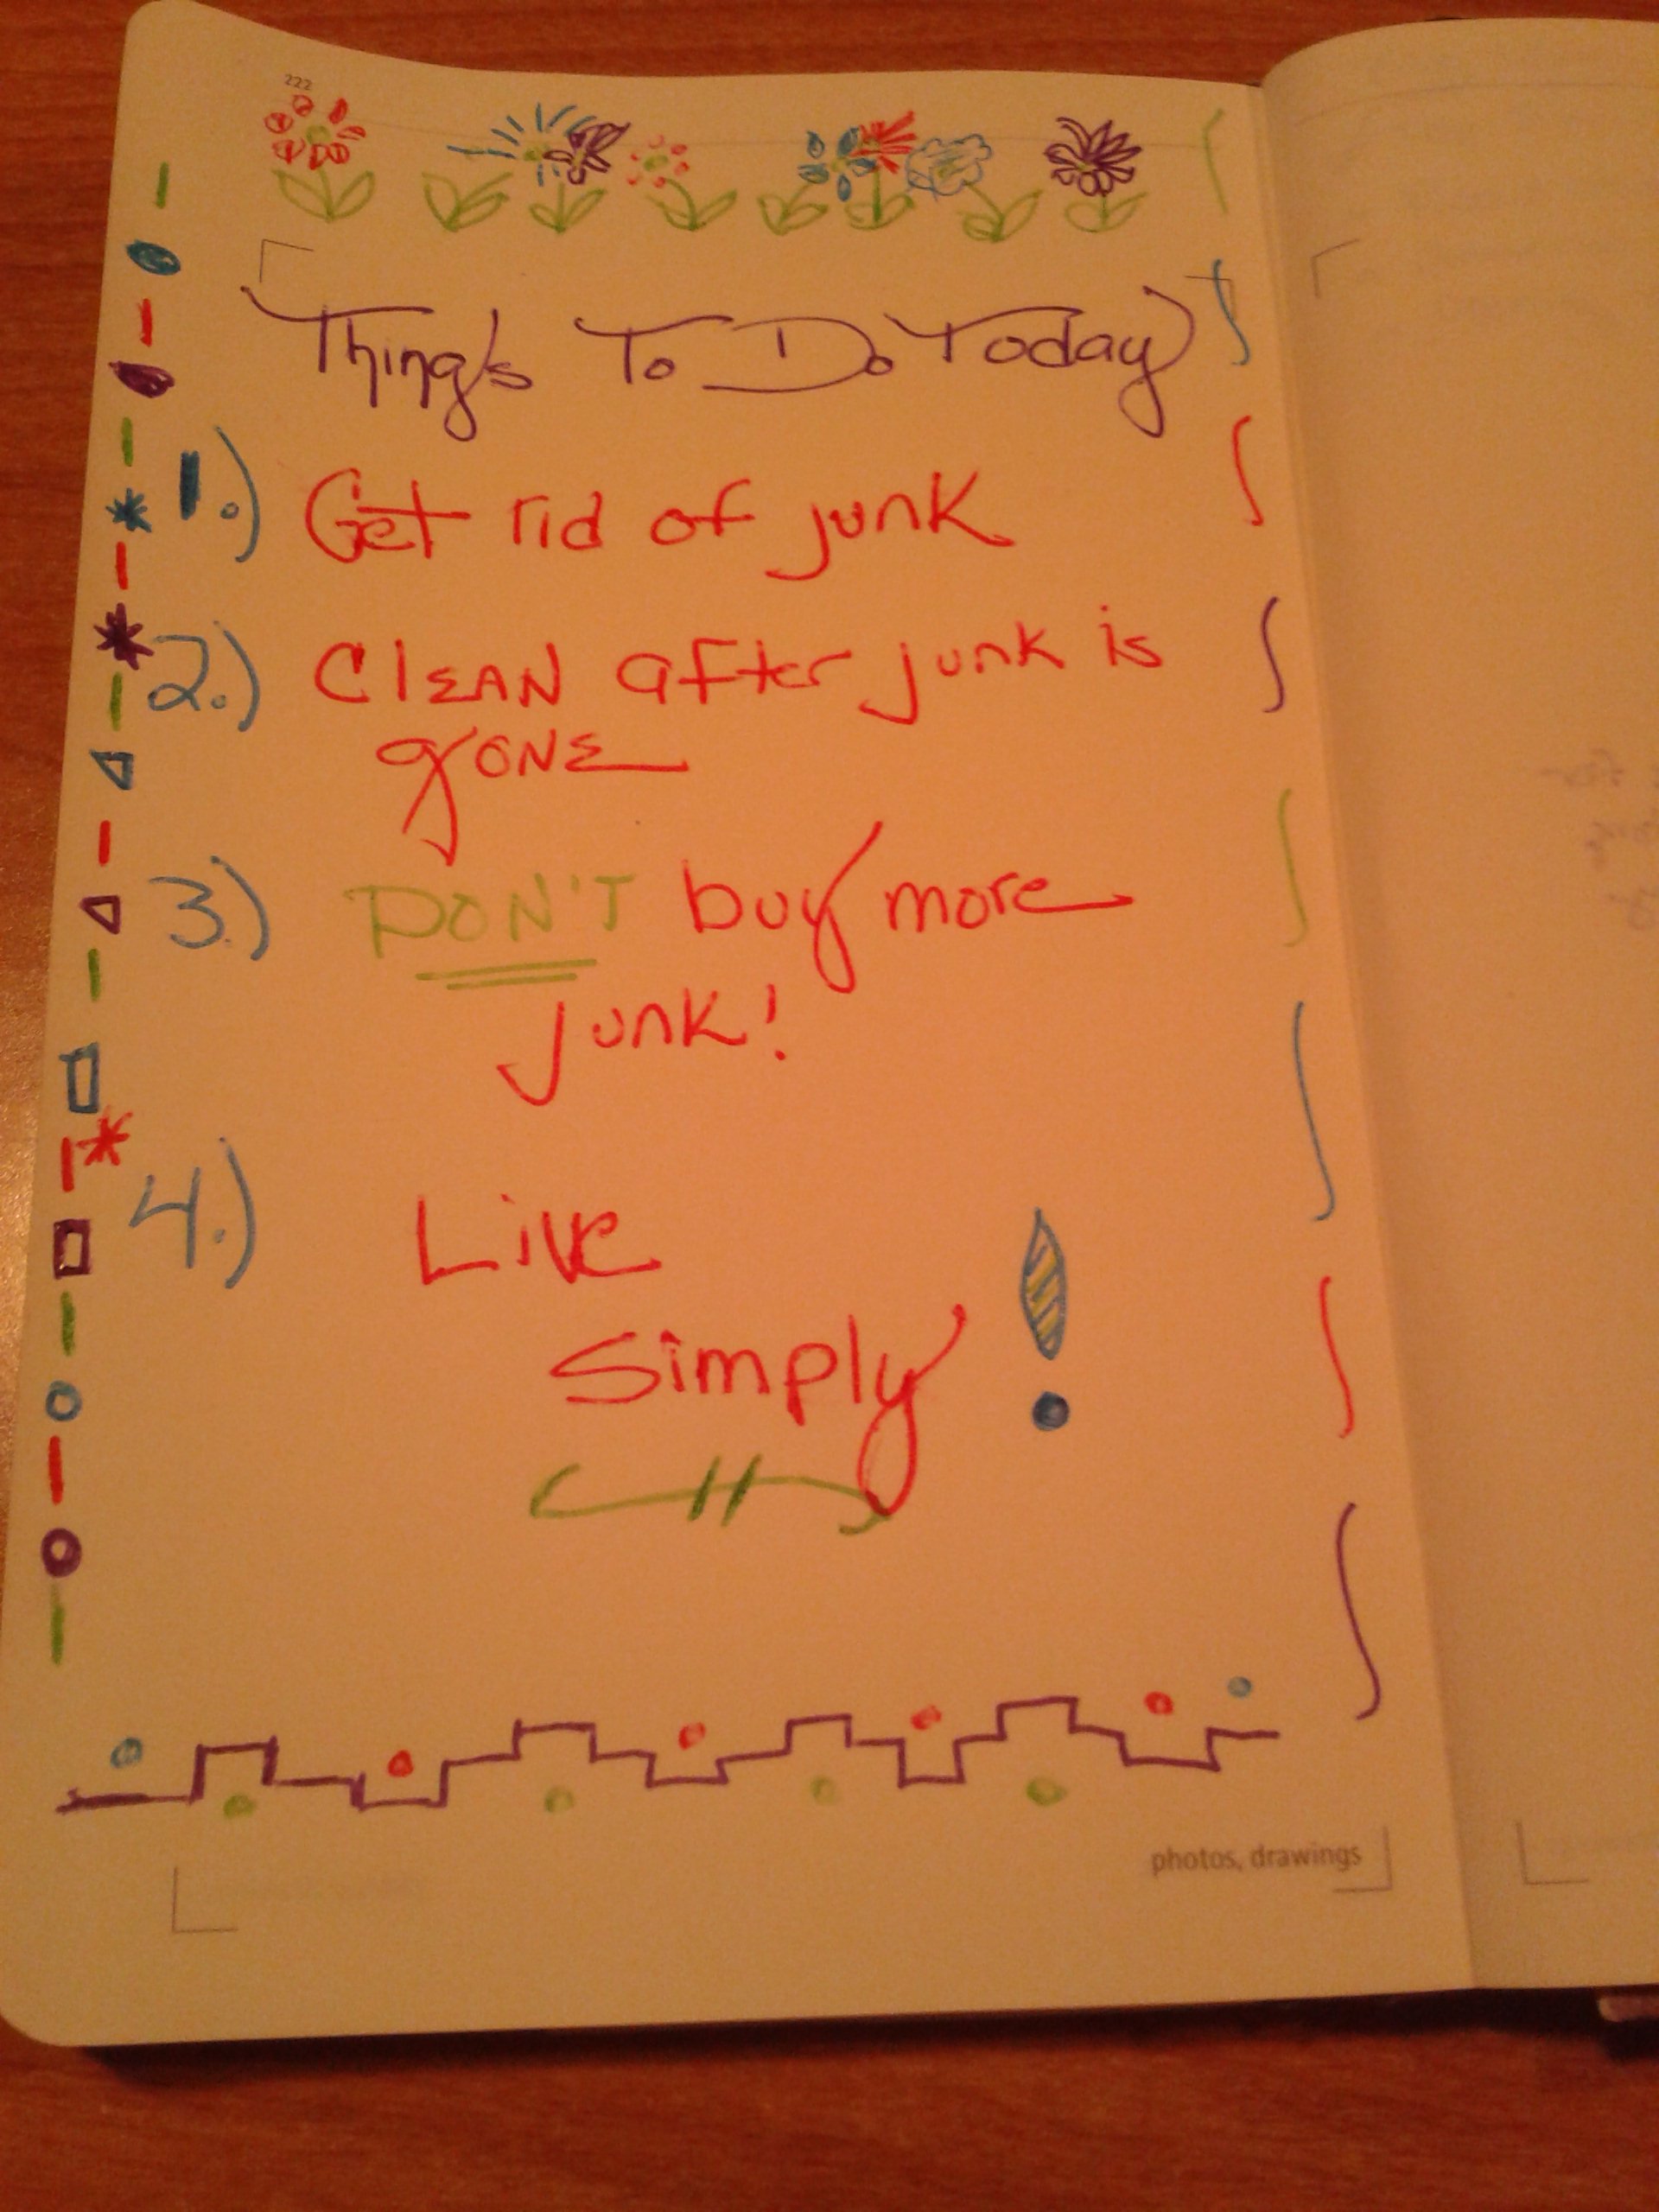 222
Things To Do Today
1.) Get rid of junk
2.) ClEAN after junk is
gONE
3.) DON'T buy more
junk!
4.) Live
Simply !
photos, drawings